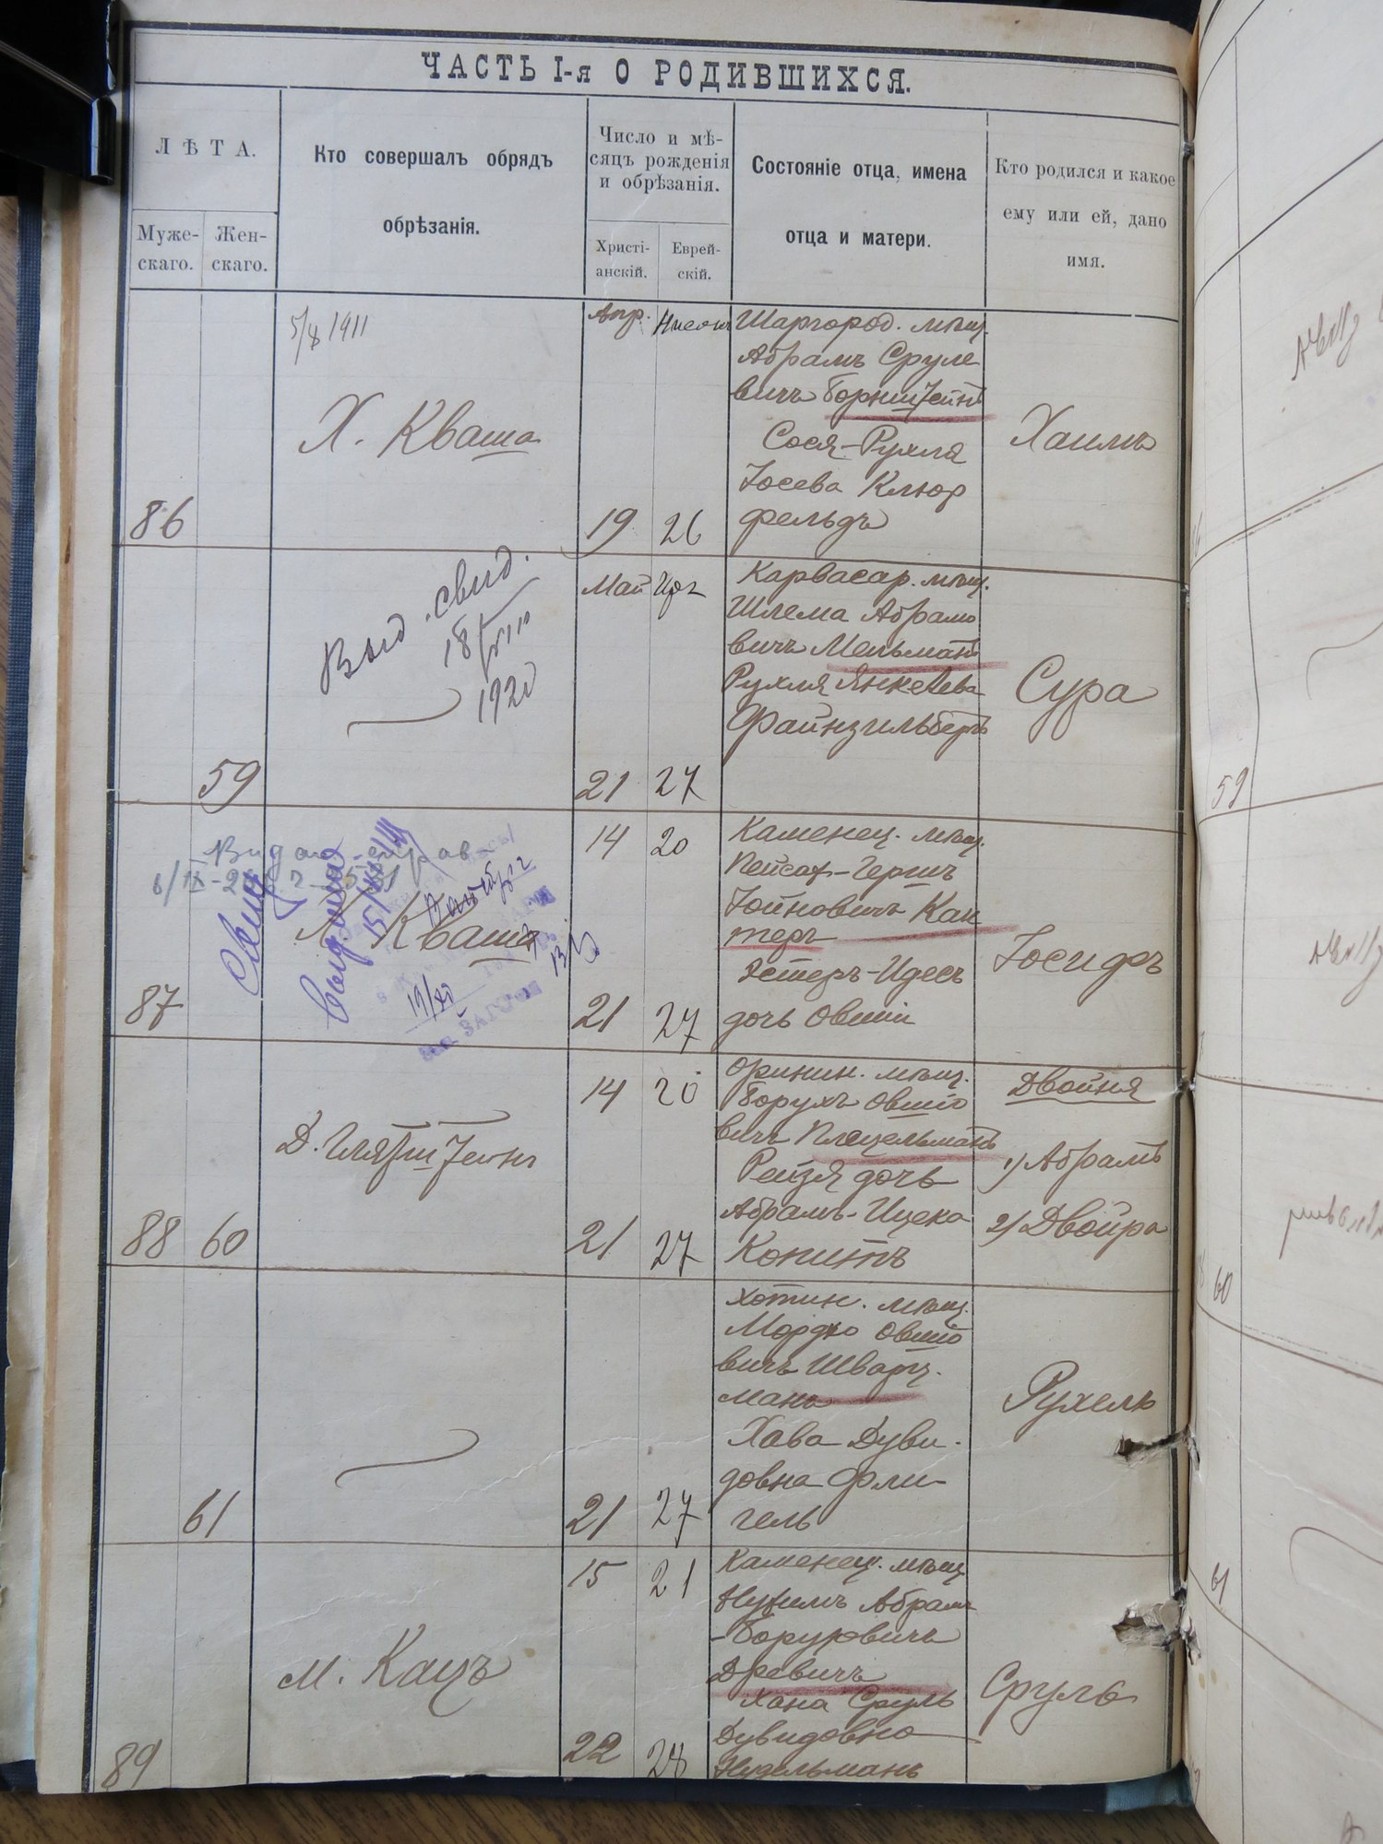 ЧАСТЬ I-я О РОДИВШИХСЯ.
ЛѢТА.
Муже-
скаго.
Жен-
скаго.
Кто совершалъ обрядъ
обрѣзанія.
Число и мѣ-
сяцъ рожденія
и обрѣзанія.
Христі-
анскій.
Еврей-
скій.
Состояніе отца, имена
отца и матери.
Кто родился и какое
ему или ей, дано
имя.
86
5/8 1911
Х. Кваша
Апр.
19
26
Шаргород. мѣщ.
Абрамъ Сруле
вичъ
Сося-Рухля
Іосева
фельдъ
Хаимъ
59
Выд. свид.
18/VIII
1920
Май
21
27
Карвасар. мѣщ.
Шлема Абрамо
вичъ Мельманъ
Рухля Янкелева
Файнзильберъ
Сура
87
Кваша
14
20
21
27
Каменец. мѣщ.
Пейсах-Гершъ
Іойновичъ Кан
теръ
Эстеръ-Идесъ
дочь Овшiи
Іосифъ
88
60
14
20
21
27
Оринин. мѣщ.
Борухъ Овшіо
вичъ
Рейзя дочь
Абрамъ-Ицека
Копитъ
Двойня
1) Абрамъ
2) Двойра
61
21
27
Хотин. мѣщ.
Мордко Овшіо
вичъ Шварц-
манъ
Хава Дуви-
довна Фли-
гель
Рухель
89
М. Кацъ
15
21
22
28
Каменец. мѣщ.
Нухимъ Абрамъ
-Боруховичъ
Хана Сруль
Дувидовна
Нудельманъ
Сруль
59
60
61